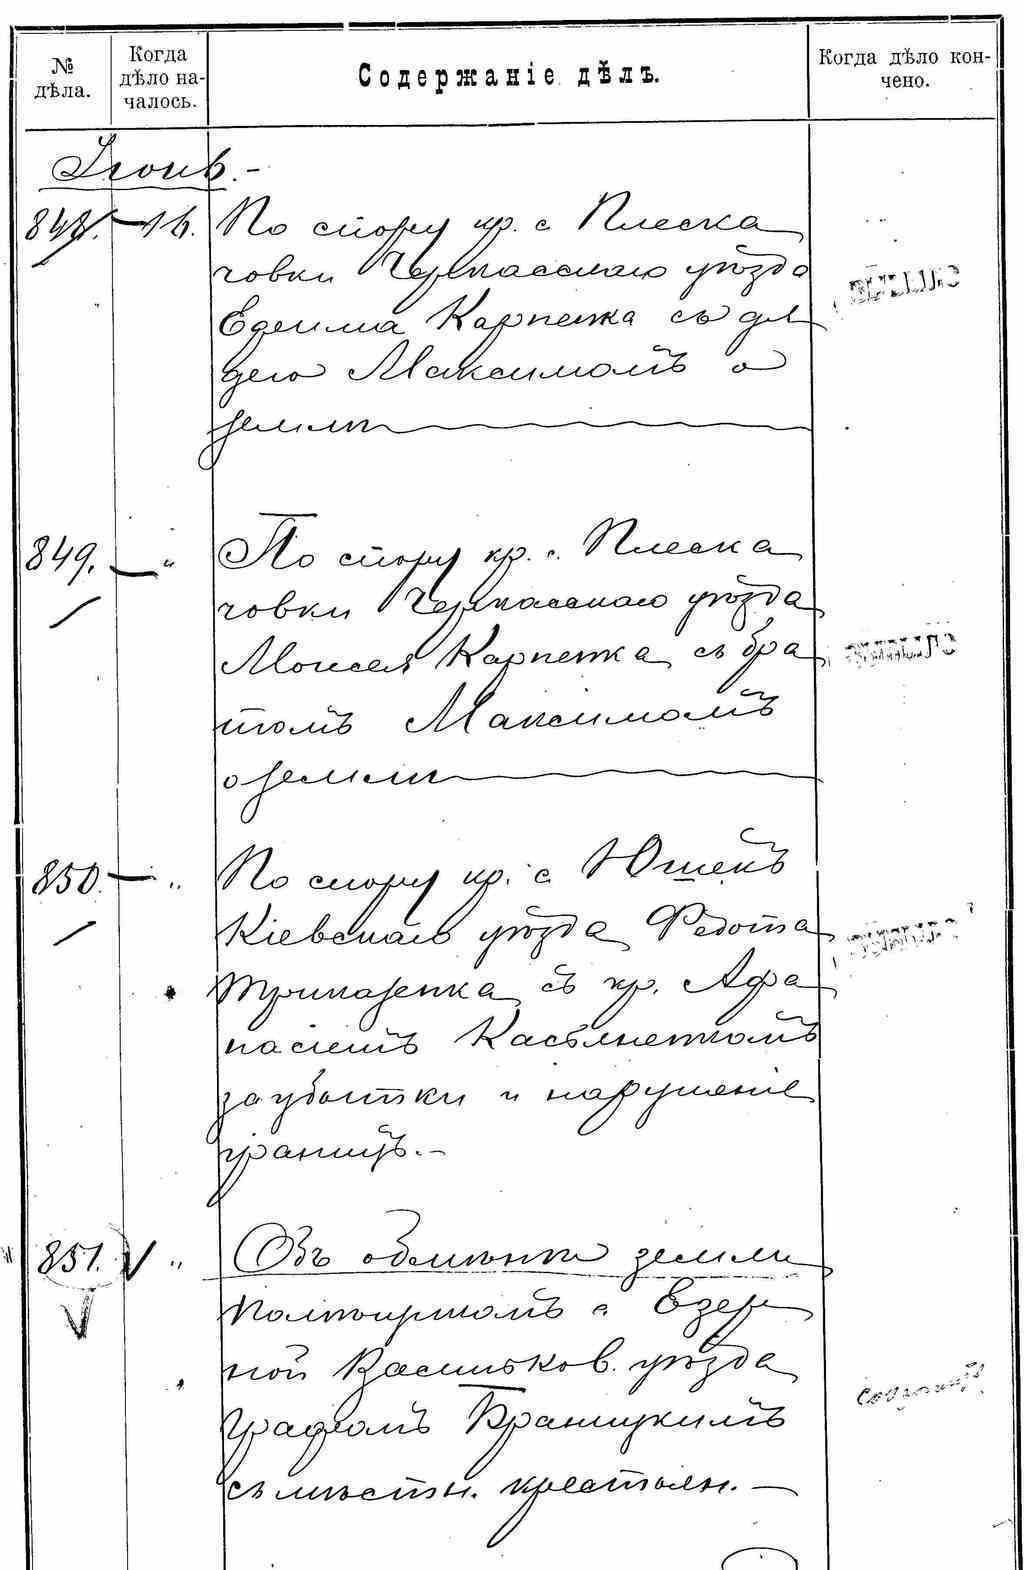 № дѣла.
Когда дѣло на-
чалось.
Содержаніе дѣлъ.
Когда дѣло кон-
чено.
Іюнь.-
848. — 16. По спору кр. с. Плеска
човки Черкасскаго уѣзда
Карпенка съ дя
дею Максимомъ о
землѣ
849. — " По спору кр. с. Плеска
човки Черкасскаго уѣзда
Моисея Карпенка съ бра
томъ Максимомъ
о землѣ
850. — " По спору кр. с.
Кіевскаго уѣзда Федота
съ кр. Афа
насіемъ Касьяненкомъ
за убытки и нарушеніе
границъ.-
851. V " Объ обмѣнѣ земли
с. Езер
ной Васильков. уѣзда
Графомъ Браницкимъ
съ мѣстн. крестьян. —